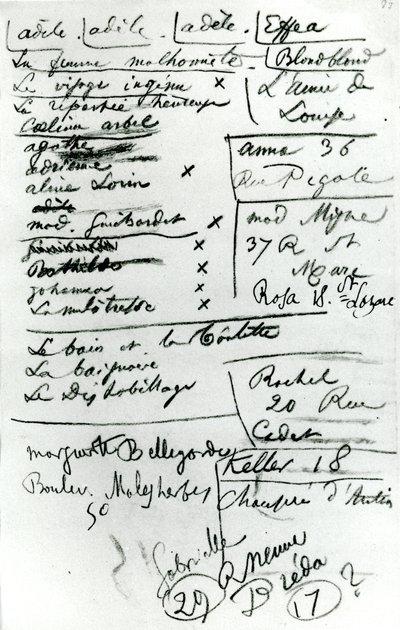 adèle. adèle. adèle. Effea
La femme malhonnête. Blondblond
Le visage ingénu x
La repentie heureuse
L'amie de
Louise
Coelina arbel
agathe
adrienne
aline Lorin x
adèle
mad. Guibardet x
x
Bathilde x
Johanna x
La mulâtresse x
anna 36
Rue Pigale
mad Migne
37 R St
Marc
Rosa 18. St Lazare
Le bain et la toilette
La baignoire
Le Déshabillage
Rachel
20 Rue
Cadet
Marguerite Bellegarde
Boulev. Malesherbes
50
Keller 18
Chaussée d'Antin
Gabrielle
29 17 ?